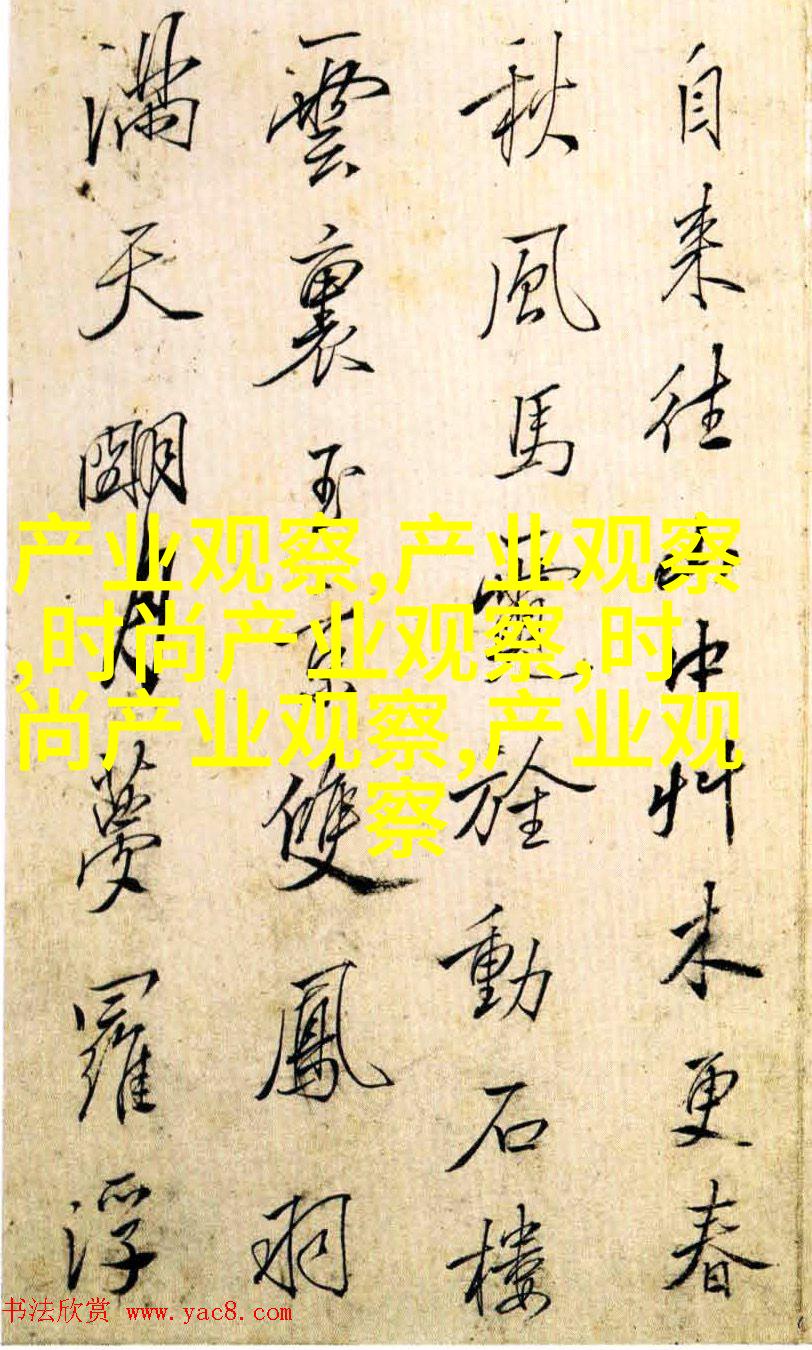 自来往山中艸木更春
秋風馬靈旌動石樓
雲裏玉京雙鳳羽
滿天明月夢羅浮
产业观察,产业观察
,时尚产业观察,时
尚产业观察,产业观
察
书法欣赏 www.yac8.com